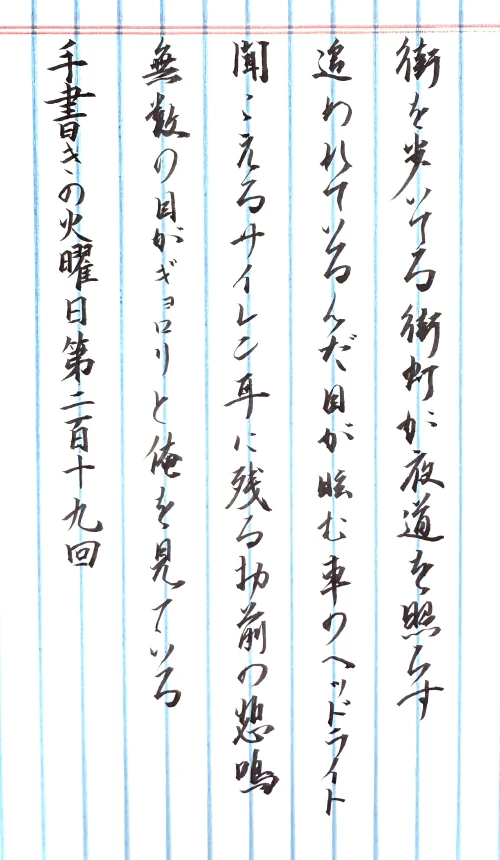 街を歩いてる街灯が夜道を照らす
追われているんだ目が眩む車のヘッドライト
聞こえるサイレン耳に残るお前の悲鳴
無数の目がギョロリと俺を見ている
手書きの火曜日第二百十九回